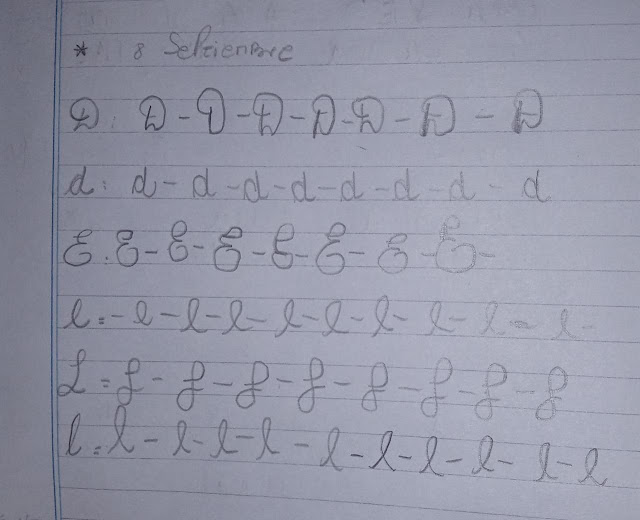 * 8 Septembre
D: D - D - D - D - D - D - D
d: d - d - d - d - d - d - d - d
E. E - E - E - E - E - E - E -
e = - e - e - e - e - e - e - e - e - e -
L = f - f - f - f - f - f - f - f
l = l - l - l - l - l - l - l - l - l - l